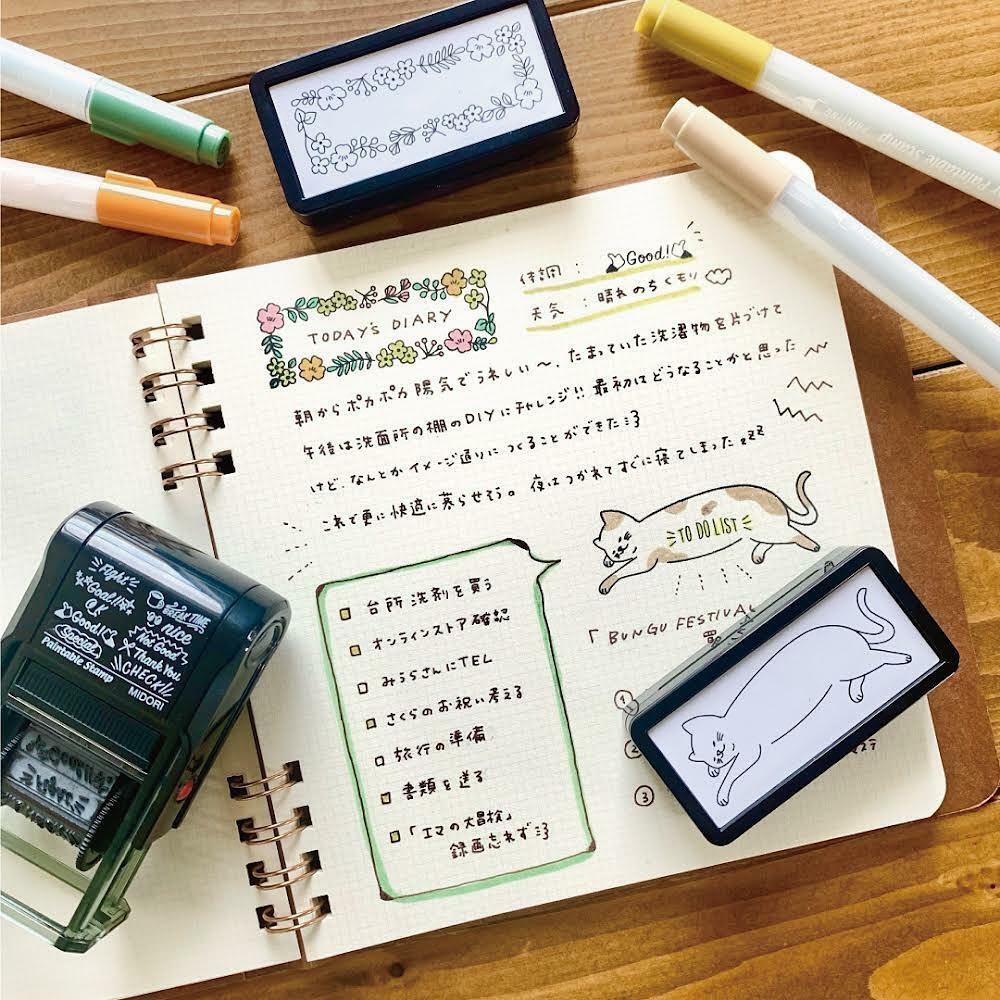 Paintable Stamp
体調 : Good!
天気 : 晴れのちくもり
TODAY'S DIARY
朝からポカポカ陽気でうれしい〜、たまっていた洗濯物を片づけて
午後は洗面所の棚のDIYにチャレンジ!! 最初はどうなることかと思った
けど、なんとかイメージ通りにつくることができた
これで更に快適に暮らせそう。夜はつかれてすぐに寝てしまった zzz
TO DO LIST
台所洗剤を買う
オンラインストア確認
みうらさんにTEL
さくらのお祝い考える
旅行の準備
書類を送る
「エマの大冒検」
録画忘れず
「BUNGU FESTIVAL
買
1
2
3
Fight
Goal!!
O.K
Good!
Special
BREAK TIME
nice
Not Good
Thank You
CHECK!!
Paintable Stamp
MIDORI